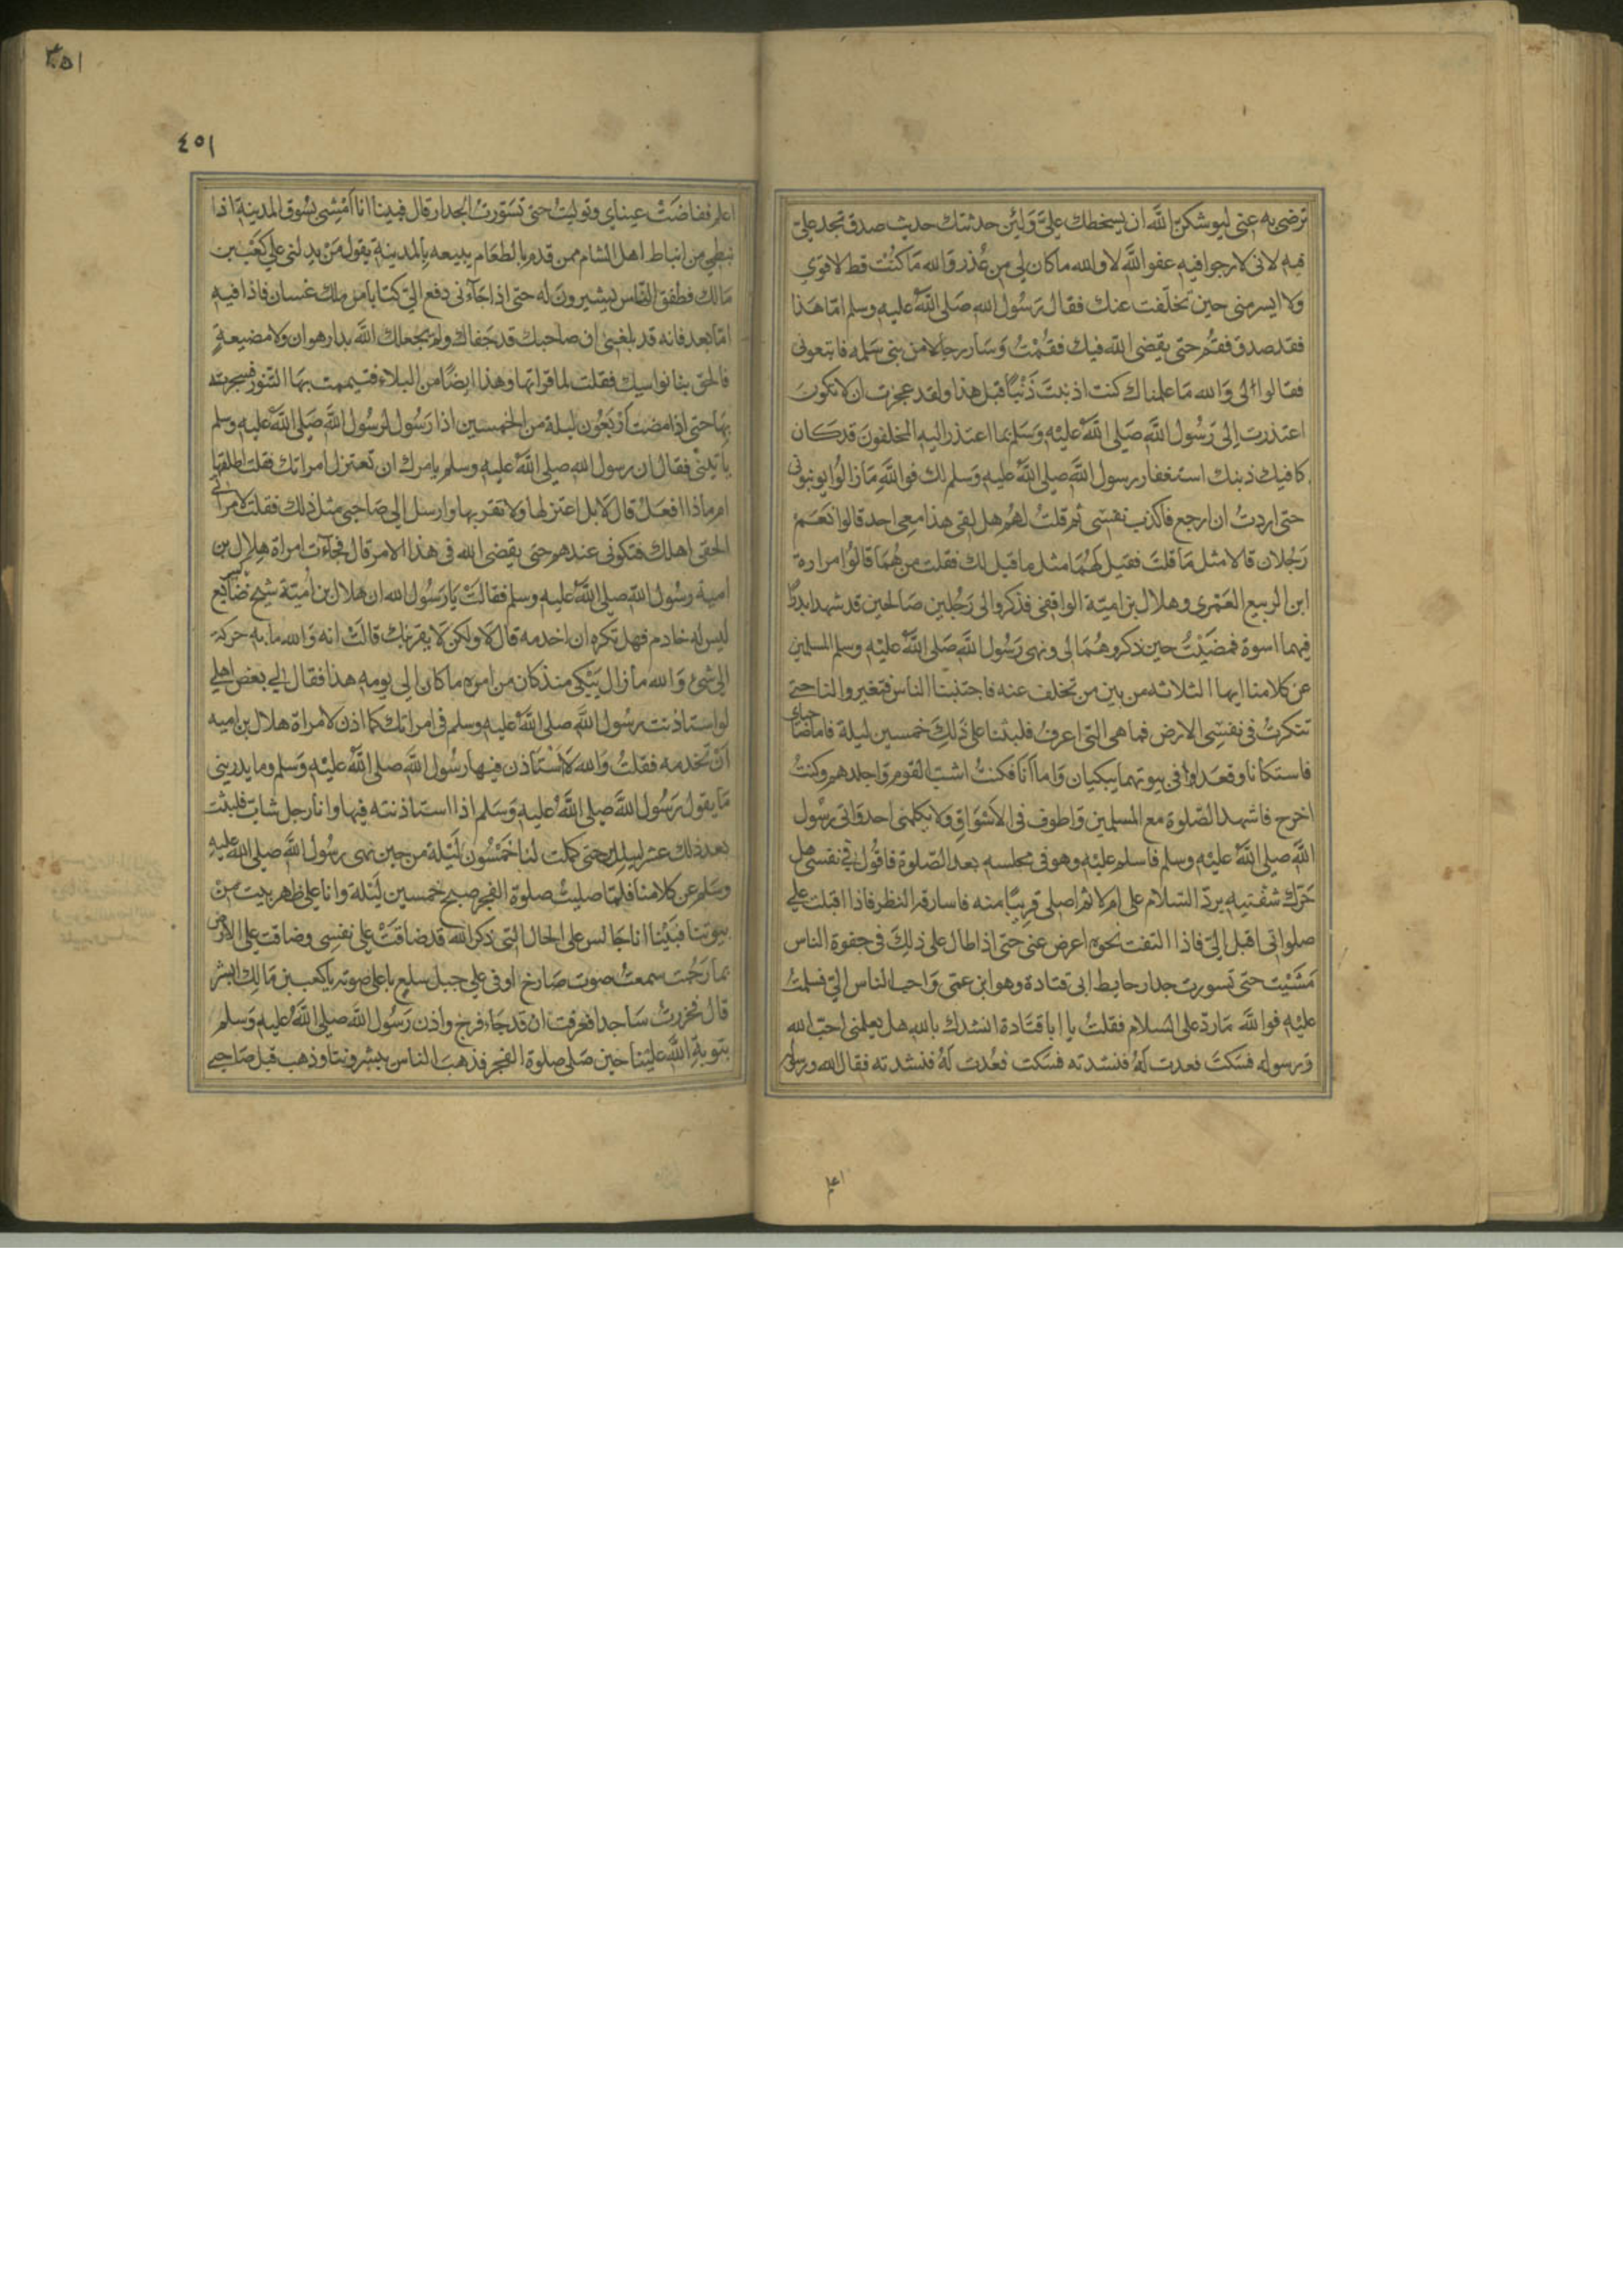 ترضى به عنى ليوشكن الله ان يسخطك علىّ وَلئن حدثتك حديث صدق تجد علىّ
فيه لانى لارجوا فيه عفو الله لا والله ماكان لى من عُذر وَالله مَا كنْت قط لا قوى
ولا ايسر منى حين تخلّفت عنك فقال رَسُول الله صَلى اللهُ عليه وسلم امّا هَذا
فقد صدق فقم حتى يقضى الله فيك فقمْتُ وَسَار رجال من بنى سَلمه فاتبعونى
فقالوا لى وَالله مَا علمناك كنت اذنبتَ ذَنْبًا قبل هذا ولقد عجزت ان لا تكونَ
اعتذرت إلى رَسُول اللهِ صَلى اللهُ عليْه وَسَلم بما اعتذر اليه المخلفونَ قد كان
كافيك ذنبك استغفار رسول اللهِ صلى اللهُ عليه وَسلم لك فواللهِ مَا زالُوا يونبونى
حتى اردتُ ان ارجع فاكذب نفسى ثم قلتُ لهُم هل لقى هذا معى احد قالوا نَعَمْ
رَجُلان قالا مثل مَا قلتَ فقيل لهُمَا مثل ما قيل لك فقلت من هُمَا قالُوا مراره
ابن الربيع العَمْرى وهلال بن اميّة الواقفى فذكروا لى رَجُلين صَالحين قد شهدا بدرًا
فيهما اسوة فمضَيْتُ حين ذكروهُمَا لى ونهى رَسُول اللهِ صَلى اللهُ عليْه وسلم المسلمين
عن كلامنا ايها الثلاثه من بين من تخلف عنه فاجتنبنا الناس وتغيروا لنا حتى
تنكرتْ فى نفسِى الارض فما هى التى اعرفُ فلبثنا على ذَلِكَ خمسين ليلة فاما صَاحباى
فاستكانا وقعَدا فى بيوتهما يبكيان وَاما أنا فكنتُ اشبّ القوم وَاجلدهم وكنتُ
اخرج فاشهد الصّلوة مع المسلمين وَاطوف فى الاسْوَاق وَلا يكلمنى احد وَاتى رسُول
اللهِ صلى اللهُ عليْه وسلم فاسلم عليْه وهو فى مجلسه بعد الصّلوة فاقُول فى نفسى هل
حَرّك شفتيه بردّ السّلام على ام لا ثم اصلى قريبًا منه فاسارقه النظر فاذا اقبلت على
صلواتى اقبل الىّ فاذا التفت نحوه اعرض عنى حتى اذا طال على ذلِكَ فى جفوة الناس
مَشَيْت حتى تسورت جدار حايط ابى قتادة وهو ابن عمّى وَاحب الناس الىّ فسلمتُ
عليْه فواللهِ مَا ردّ على السلام فقلتُ يا ابا قتَادة انشدك باللهِ هل تعلمنى احبّ الله
وَرسوله فسَكتَ فعدت لهُ فنشدته فسَكت فعُدت لهُ فنشدته فقال الله ورسوله
٣٥١
٤٥١
اعلم ففاضَتْ عيناى وتوليتُ حتى تسَوّرت الجدار قال فبينا انا أمْشِى بسُوق المدينة اذا
نبطى من انباط اهل الشام ممن قدم بالطعَام يبيعه بالمدينة يقول مَنْ يدلنى على كعْب بن
مَالك فطفق النّاس يُشيرونَ له حتى اذا جَآءنى دفع الىّ كتابا من ملك غسان فاذا فيه
امّا بعد فانه قد بلغنى ان صاحبك قد جَفاك ولم يجعلك الله بدار هوان ولا مضيعةٍ
فالحق بنا نواسيك فقلت لما قراتها وهذا ايضًا من البلاء فتيممت بهَا التنور فسجرته
بهَا حتى اذا مضت ارْبَعُون ليلة من الخمسين اذا رَسُول لرسُول اللهِ صَلى اللهُ عليه وسلم
ياتينى فقال ان رسول الله صلى اللهُ عليه وسلم يامرك ان تعتزل امراتك فقلت اطلقها
ام ماذا افعَلْ قال لا بل اعتزلها ولا تقربها وارسل الى صَاحبى مثل ذلك فقلت لامراتى
الحقى اهلك فتكونى عندهم حتى يقضى الله فى هذا الامر قال فجآءت امراة هِلال بن
امية رسُول اللهِ صلى اللهُ عليه وسلم فقالَتْ يَا رَسُول الله ان هلال بن اُميّة شيخ ضَايع
ليس له خادم فهل تكره ان اخدمه قال لا ولكن لا يقربك قالتْ انه وَالله ما به حركة
الى شئ وَالله ما زال يَبْكى منذ كان من امره ما كان الى يومه هذا فقال لى بعض اهلى
لو استاذنت رسُول اللهِ صلى اللهُ عليه وسلم فى امراتك كما اذن لامراة هلال بن اميه
أنْ تخدمه فقلتُ وَالله لا اَسْتأذن فيها رسُول اللهِ صلى اللهُ عليْه وَسلم وما يدرينى
مَا يقول رَسُول اللهِ صلى اللهُ عليه وَسَلم اذا استاذنته فيها وانا رجل شابّ فلبثت
بعد ذلك عشر ليال حتى كملت لنا خَمْسُون ليْلة من حين نهى رسُول اللهِ صلى الله عليه
وسَلم عن كلامنا فلمّا صليتُ صلوة الفجر صبح خمسين ليْلة وانا على ظهر بيت منْ
بيوتنا فبَيْنا انا جَالس على الحال التى ذكر الله قد ضاقَتْ على نفسِى وضاقت على الارض
بما رَحُبت سمعتُ صوت صَارخ اوفى على جبل سلع باعلى صوته يا كعب بن مَالك ابشر
قال فخررتُ سَاجدا فعرفت ان قد جَاء فرج واذن رَسُول اللهِ صلى اللهُ عليه وَسلم
بتوبةِ اللهِ علينا حين صَلى صلوة الفجر فذهبَ الناس يبشروننا وذهب قبل صَاحبى